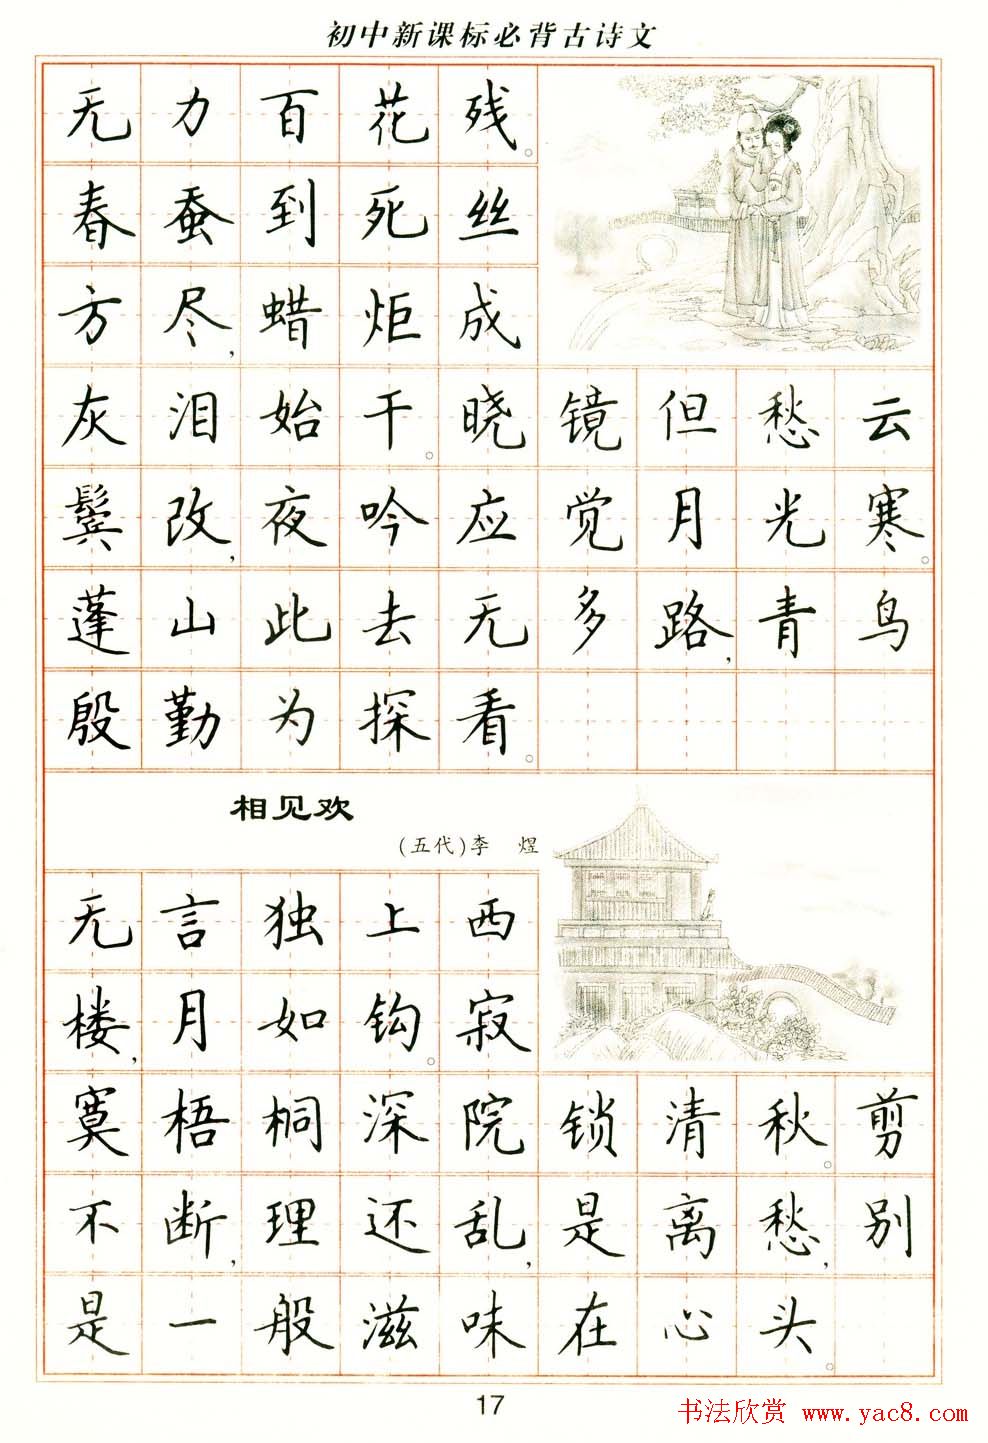 初中新课标必背古诗文
无力百花残。
春蚕到死丝
方尽，蜡炬成
灰泪始干。晓镜但愁云
鬓改，夜吟应觉月光寒。
蓬山此去无多路，青鸟
殷勤为探看。
相见欢
(五代)李 煜
无言独上西
楼，月如钩。寂
寞梧桐深院锁清秋。剪
不断，理还乱，是离愁，别
是一般滋味在心头。
17
书法欣赏 www.yac8.com